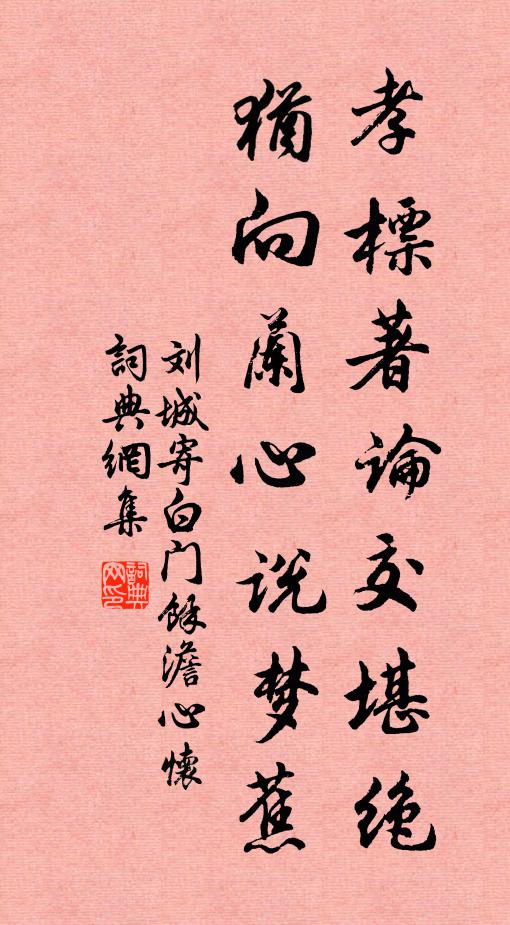 孝標著論交堪绝
猶向蘭心说梦蕉
刘城寄白门馀澹心懐
詞典網集
詞典網印